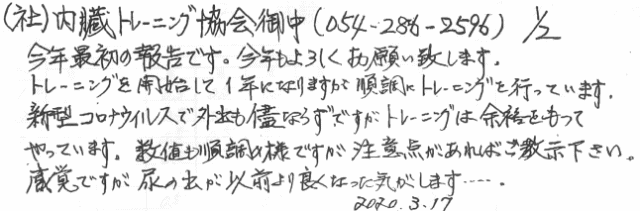 (社)内臓トレーニング協会御中(054-286-2596) 1/2
今年最初の報告です。今年もよろしくお願い致します。
トレーニングを開始して1年になりますが順調にトレーニングを行っています。
新型コロナウイルスで外出も儘ならずですがトレーニングは余裕をもって
やっています。数値も順調の様ですが注意点があればご教示下さい。
感覚ですが尿の出が以前より良くなった気がします……。
2020.3.17